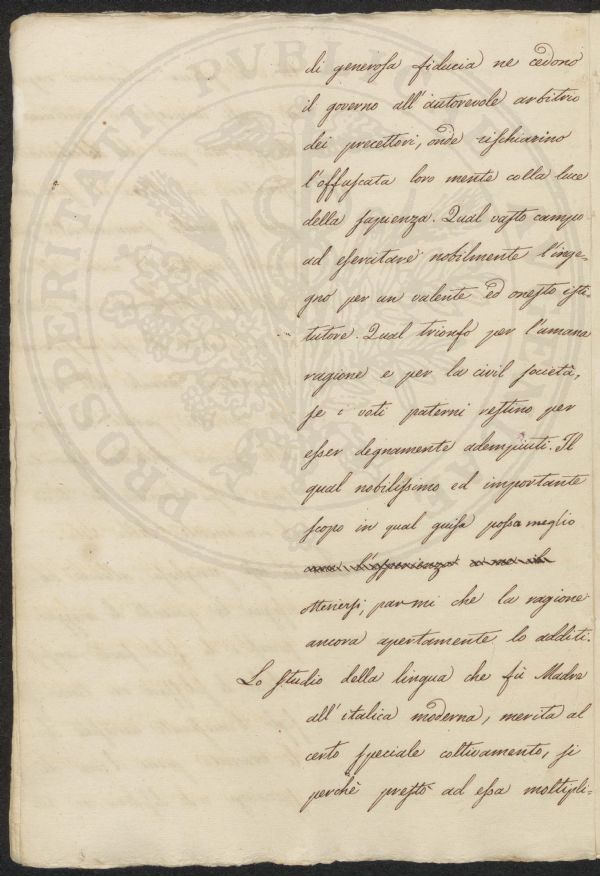 di generosa fiducia ne cedono
il governo all'autorevole arbitrio
dei precettori, onde rischiarino
l'offuscata loro mente colla luce
della sapienza. Qual vasto campo
ad esercitare nobilmente l'inge=
gno per un valente ed onesto isti=
tutore. Qual trionfo per l'umana
ragione e per la civil società,
se i voti paterni restino per
esser degnamente adempiuti. Il
qual nobilissimo ed importante
scopo in qual guisa possa meglio
l'esperienza
ottenersi, parmi che la ragione
ancora apertamente lo additi.
Lo studio della lingua che fù Madre
all'italica moderna, merita al
certo speciale coltivamento, sì
perchè prestò ad essa moltipli=
PROSPERITATI PUBLICAE